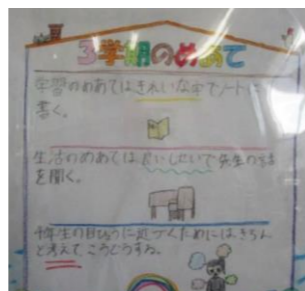 3学期のめあて
学習のめあてはきれいな字でノートに
書く。
生活のめあては、正しいしせいで先生の話
を聞く。
年生の目ひょうに近づくためには、きちん
と考えてこうどうする。